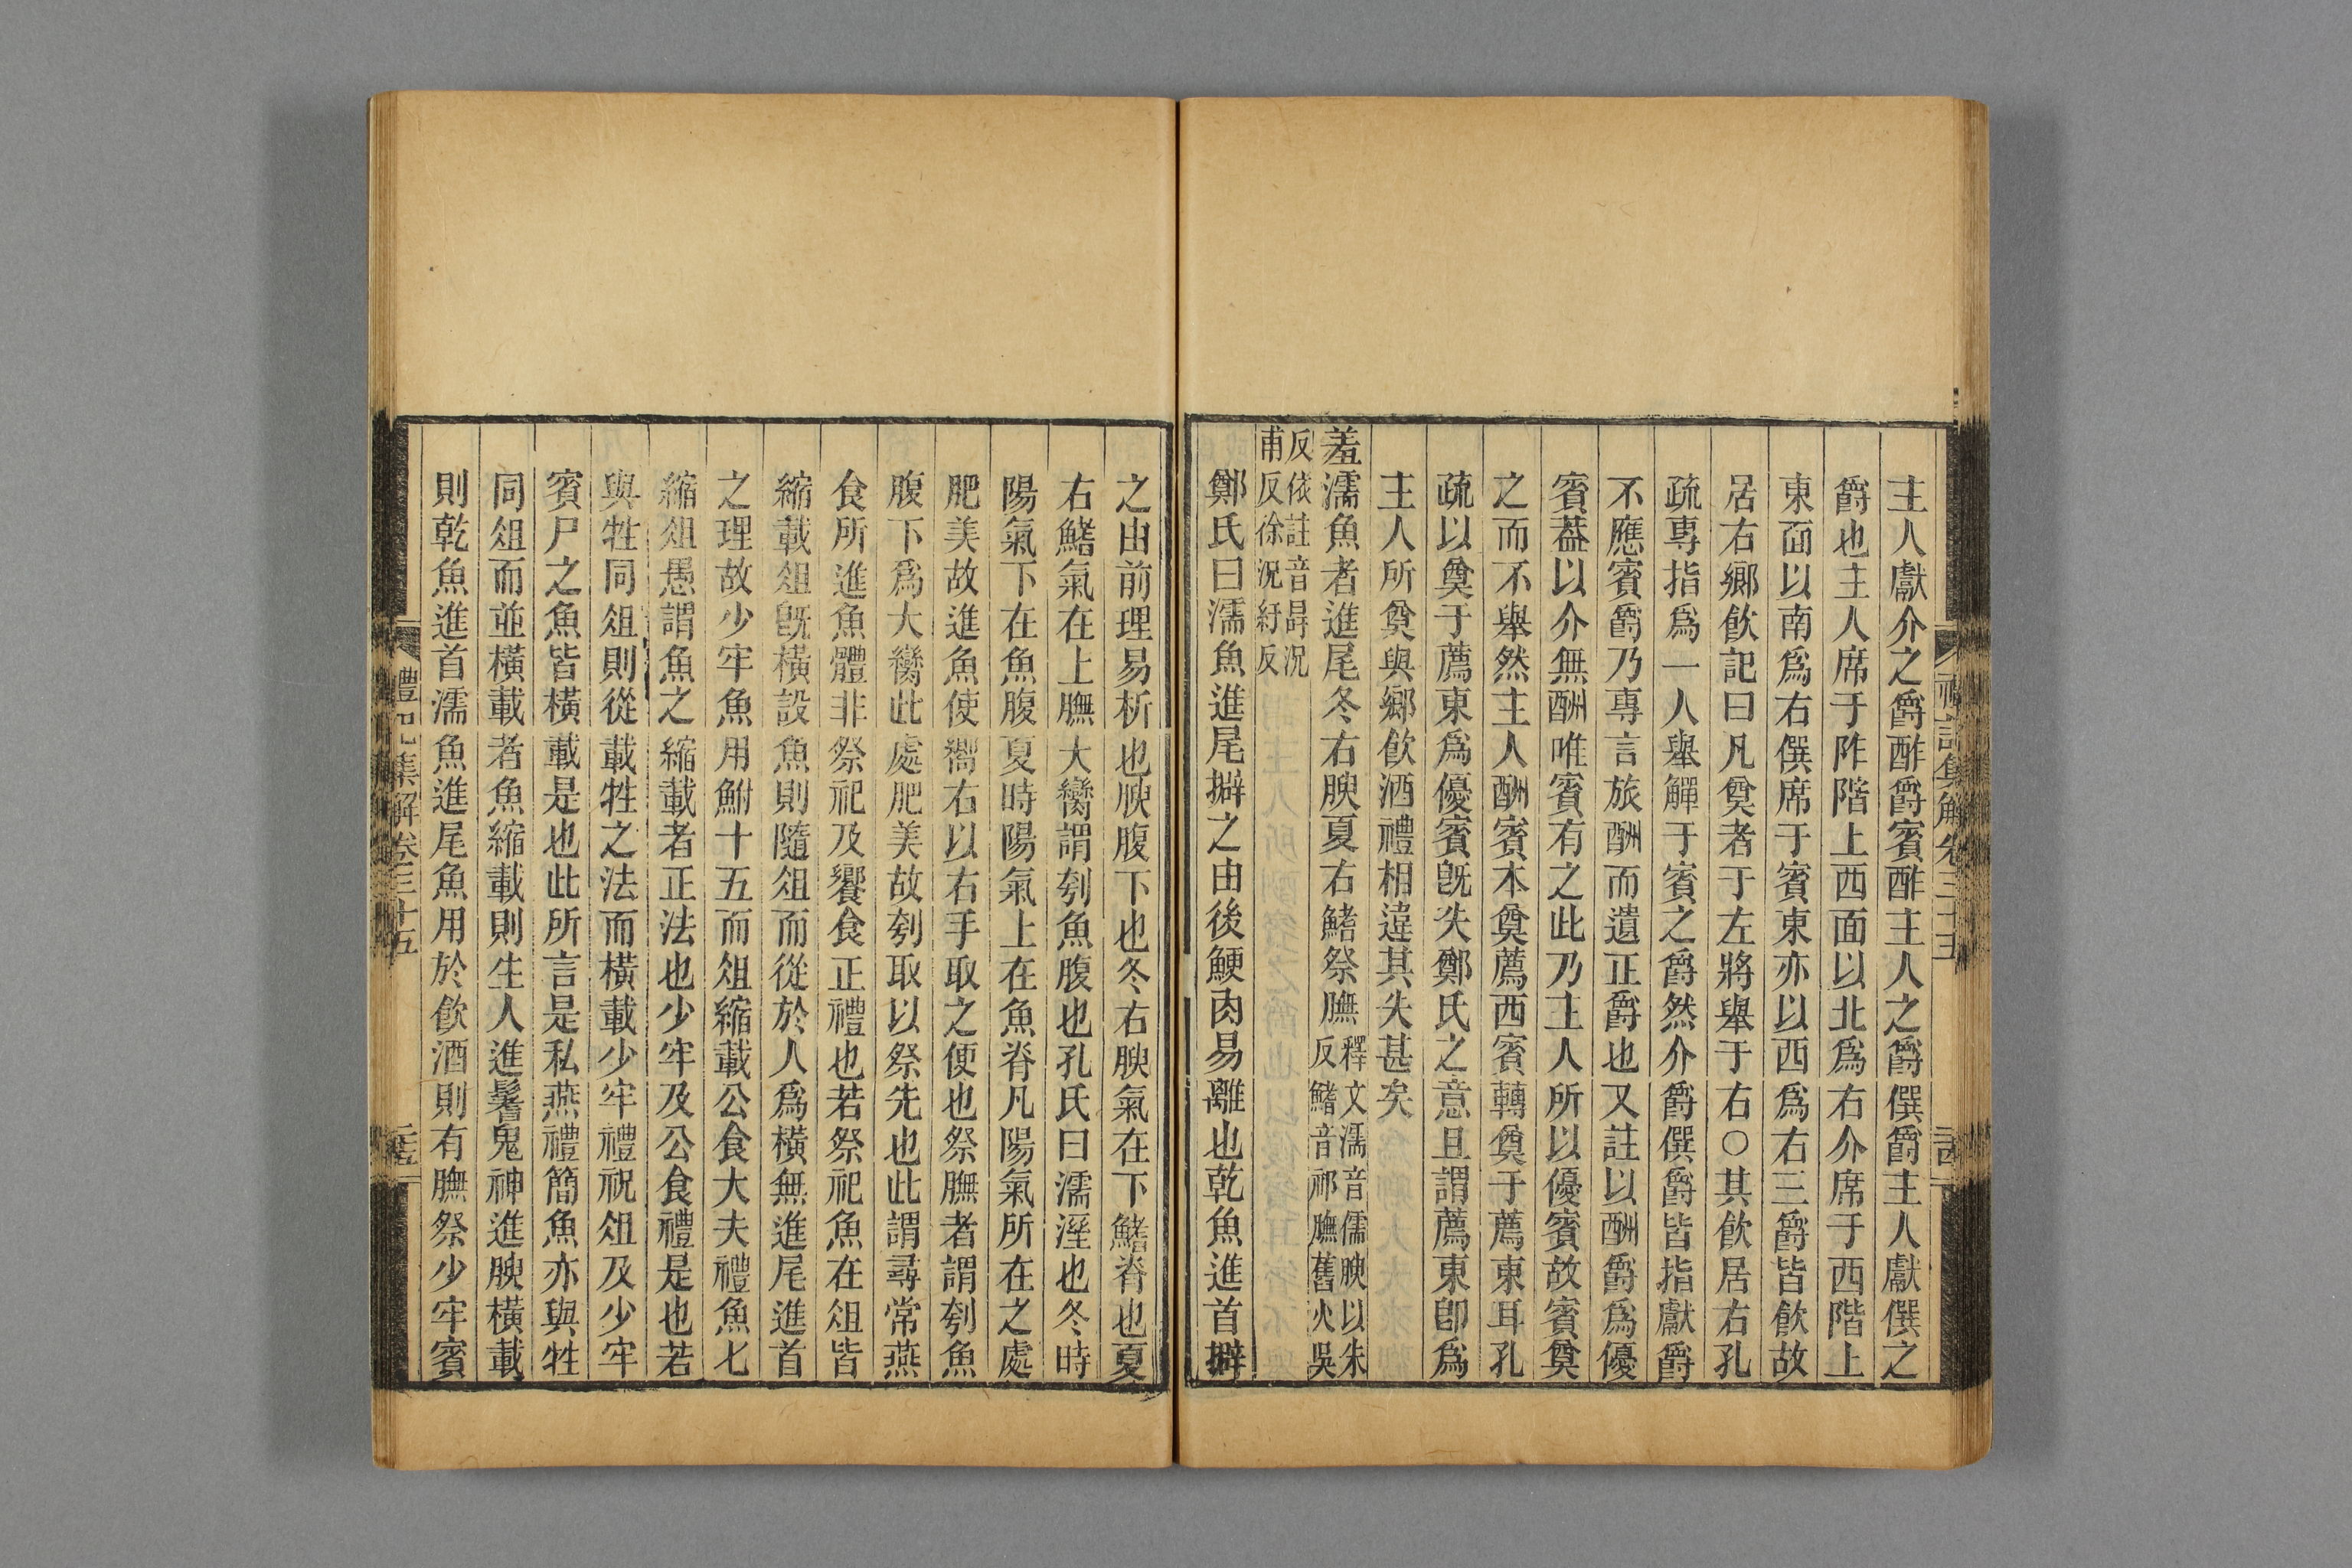 主人獻介之爵酢爵賓酢主人之爵僎爵主人獻僎之
爵也主人席于阼階上西面以北為右介席于西階上
東面以南為右僎席于賓東亦以西為右三爵皆飲故
居右鄉飲記曰凡奠者于左將舉于右○其飲居右孔
疏專指為一人舉觶于賓之爵然介爵僎爵皆指獻爵
不應賓爵乃專言旅酬而遺正爵也又註以酬爵為優
賓葢以介無酬唯賓有之此乃主人所以優賓故賓奠
之而不舉然主人酬賓本奠薦西賓轉奠于薦東耳孔
疏以奠于薦東為優賓旣失鄭氏之意且謂薦東卽為
主人所奠與鄉飲酒禮相違其失甚矣
羞濡魚者進尾冬右腴夏右鰭祭膴釋文濡音儒腴以朱
反鰭音祁膴舊火吳
反依註音冔況
甫反徐況紆反
鄭氏曰濡魚進尾擗之由後鯁肉易離也乾魚進首擗
之由前理易析也腴腹下也冬右腴氣在下鰭脊也夏
右鰭氣在上膴大臠謂刳魚腹也孔氏曰濡溼也冬時
陽氣下在魚腹夏時陽氣上在魚脊凡陽氣所在之處
肥美故進魚使嚮右以右手取之便也祭膴者謂刳魚
腹下為大臠此處肥美故刳取以祭先也此謂尋常燕
食所進魚體非祭祀及饗食正禮也若祭祀魚在俎皆
縮載俎旣橫設魚則隨俎而從於人為橫無進尾進首
之理故少牢魚用鮒十五而俎縮載公食大夫禮魚七
縮俎愚謂魚之縮載者正法也少牢及公食禮是也若
與牲同俎則從載牲之法而橫載少牢禮祝俎及少牢
賓尸之魚皆橫載是也此所言是私燕禮簡魚亦與牲
同俎而並橫載者魚縮載則生人進鬐鬼神進腴橫載
則乾魚進首濡魚進尾魚用於飲酒則有膴祭少牢賓
禮記集解卷三十五